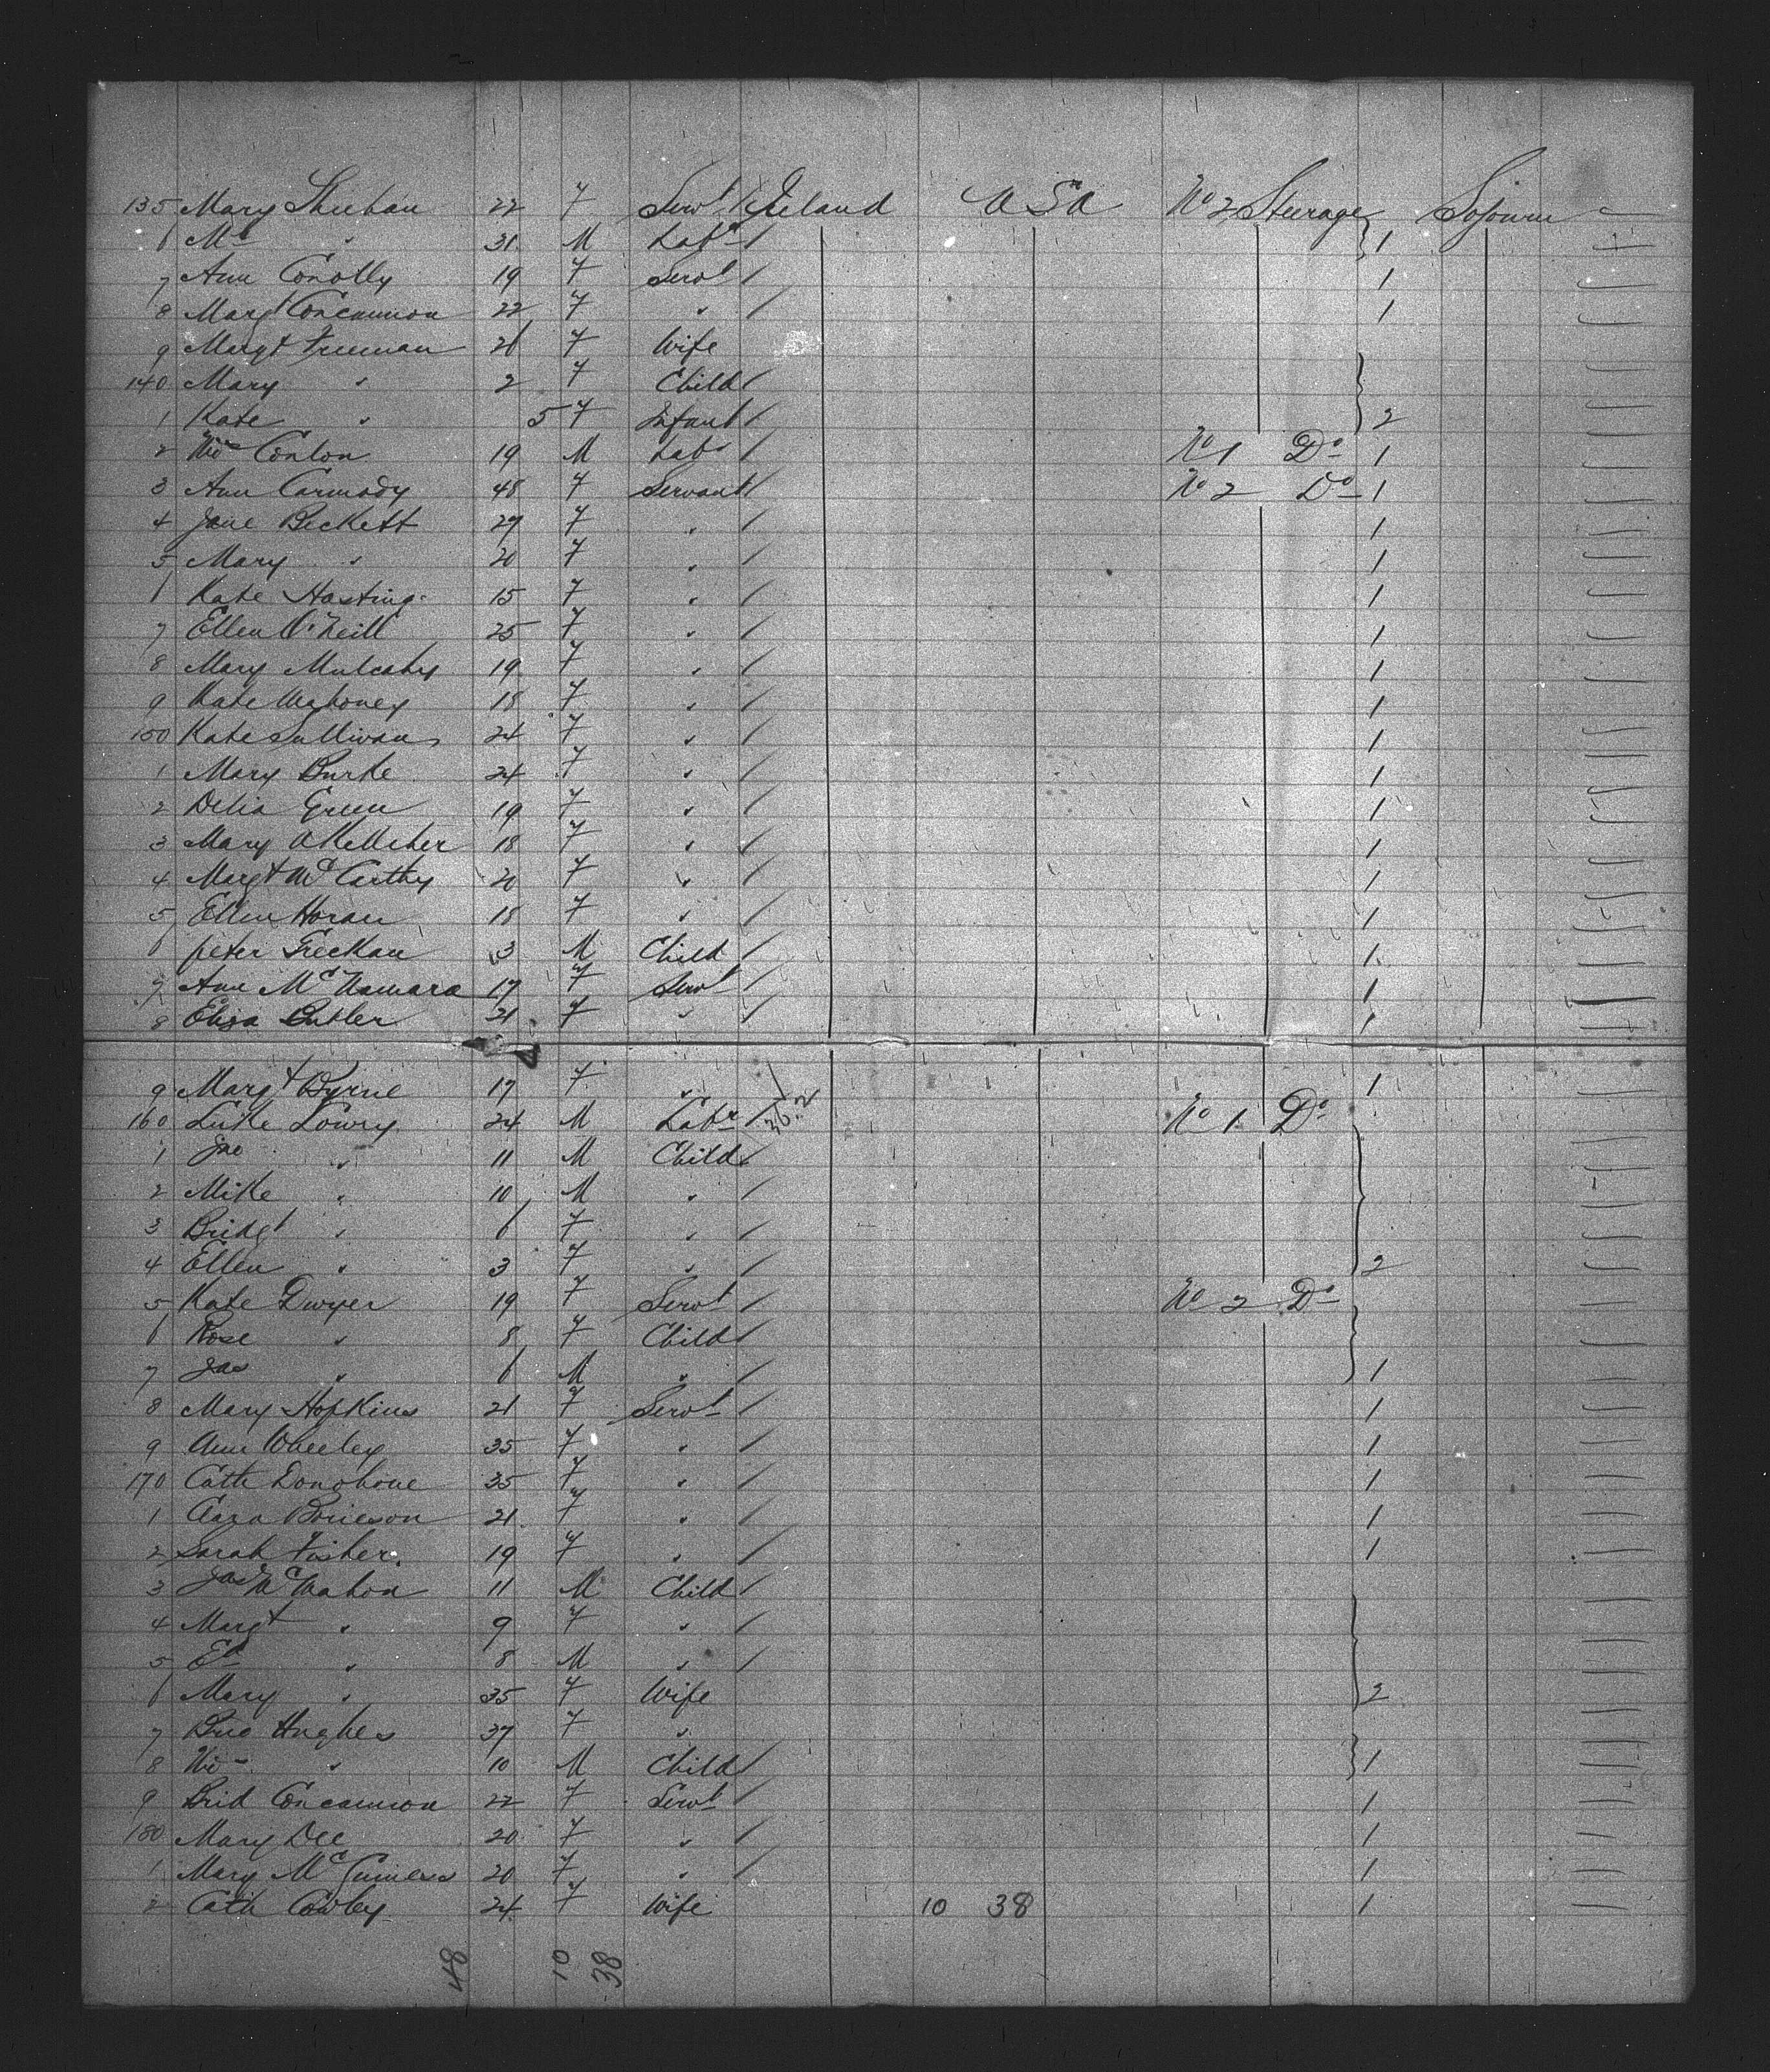 135 Mary Sheehan 22 F Servt Ireland U S A No 2 Steerage Sojourn
6 Mc " 31 M Labr 1
7 Ann Conolly 19 F Servt 1
8 Margt Concannon 22 F " 1
9 Margt Freeman 26 F Wife
140 Mary " 2 F Child
1 Kate " 5 F Infant 2
2 Wm Conlon 19 M Labr No 1 Do 1
3 Ann Carmody 48 F Servant No 2 Do 1
4 Jane Beckett 27 F " 1
5 Mary " 20 F " 1
6 Kate Hastings 15 F " 1
7 Ellen O'Neill 25 F " 1
8 Mary Mulcahy 19 F " 1
9 Kate Mahoney 18 F " 1
150 Kate Sullivan 24 F " 1
1 Mary Burke 24 F " 1
2 Delia Green 19 F " 1
3 Mary O Kelleher 18 F " 1
4 Margt McCarthy 20 F " 1
5 Ellen Horan 18 F " 1
6 peter 3 M Child 1
7 Ann McNamara 17 F Servt 1
8 Eliza Butler 21 F " 1
9 Margt Byrne 17 F " 1
160 Luke Lowry 24 M Labr 36.2 No 1 Do
1 Jno " 11 M Child
2 Mike " 10 M "
3 Bridgt " 6 F "
4 Ellen " 3 F " 2
5 Kate Dwyer 19 F Servt No 2 Do
6 Rose " 8 F Child
7 Jas " 6 M " 1
8 Mary Hopkins 21 F Servt 1
9 Ann Wheeley 35 F " 1
170 Cath Donohoue 35 F " 1
1 21 F " 1
2 Sarah Fisher 19 F " 1
3 Jas McMahon 11 M Child
4 Margt " 9 F "
5 Ed " 8 M "
6 Mary " 35 F Wife 2
7 Hughes 37 F "
8 Wm " 10 M Child 1
9 Brid Concannon 22 F Servt 1
180 Mary Dee 20 F " 1
1 Mary McGuiness 20 F " 1
2 Cath Cowley 24 F Wife 10 38 1
48 10 38